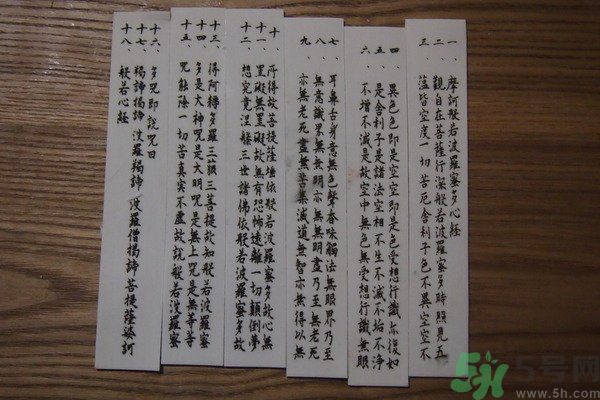 一、摩訶般若波羅蜜多心經
二、觀自在菩薩行深般若波羅蜜多時照見五
三、蘊皆空度一切苦厄舍利子色不異空空不
四、異色色即是空空即是色受想行識亦復如
五、是舍利子是諸法空相不生不滅不垢不淨
六、不增不減是故空中無色無受想行識無眼
七、耳鼻舌身意無色聲香味觸法無眼界乃至
八、無意識界無無明亦無無明盡乃至無老死
九、亦無老死盡無苦集滅道無智亦無得以無
十、所得故菩提薩埵依般若波羅蜜多故心無
十一、罣礙無罣礙故無有恐怖遠離一切顛倒夢
十二、想究竟涅槃三世諸佛依般若波羅蜜多故
十三、得阿耨多羅三藐三菩提故知般若波羅蜜
十四、多是大神咒是大明咒是無上咒是無等等
十五、咒能除一切苦真實不虛故說般若波羅蜜
十六、多咒即說咒曰
十七、揭諦揭諦 波羅揭諦 波羅僧揭諦 菩提薩婆訶
十八、般若心經
5号网
www.5h.com